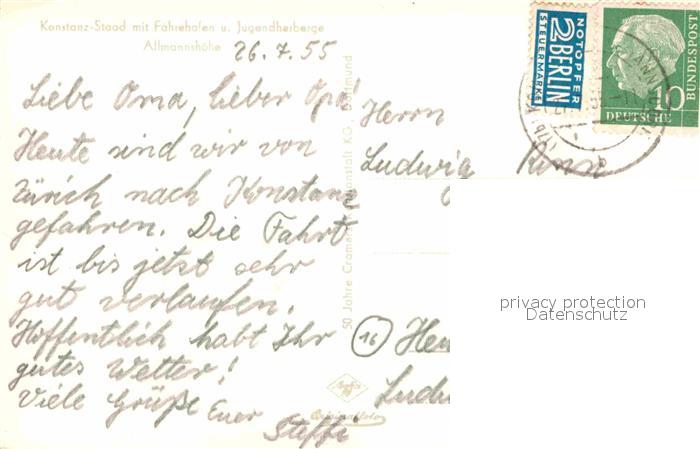 Konstanz-Staad mit Fährehafen u. Jugendherberge
Allmannshöhe
26.7.55
Liebe Oma, lieber Opa!
Heute sind wir von
Zürich nach Konstanz
gefahren. Die Fahrt
ist bis jetzt sehr
gut verlaufen.
Hoffentlich habt Ihr
gutes Wetter!
Viele Grüße Euer
Steffi
50 Jahre Cramers Kunstanstalt KG Dortmund
Originalfoto
NOTOPFER
2 BERLIN
STEUERMARKE
10
DEUTSCHE
BUNDESPOST
Herrn
Ludwig Rinn
16
privacy protection
Datenschutz